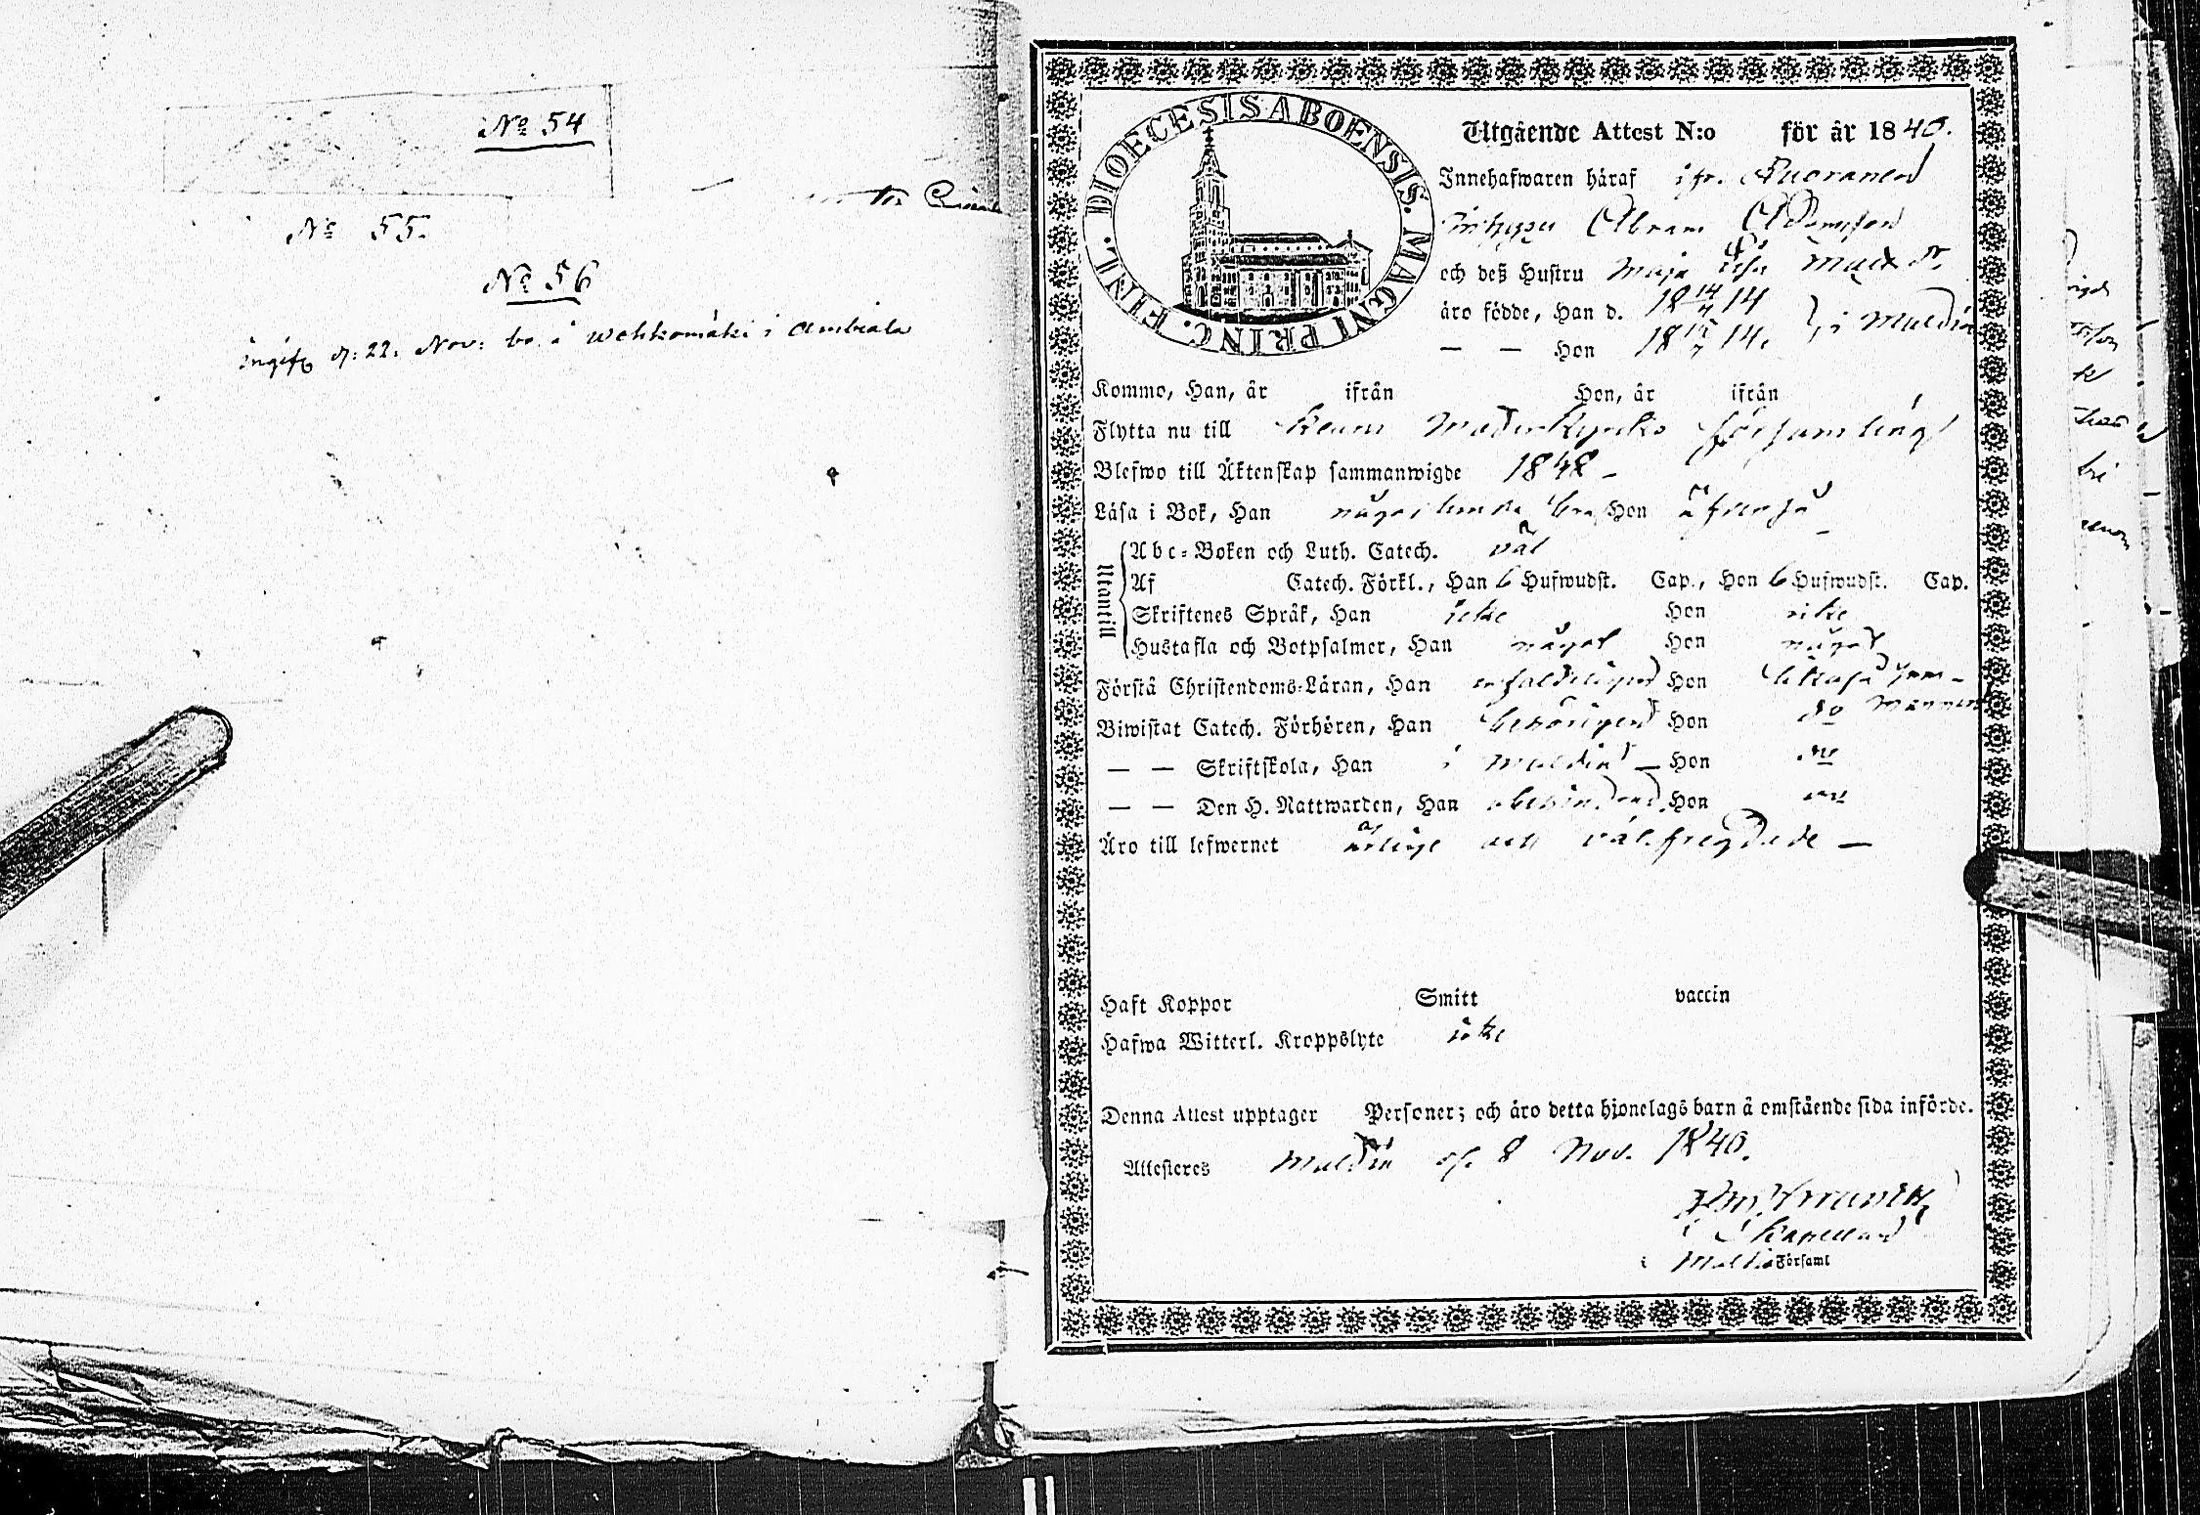 No 54
No 55.
No 56
ingifv d: 22. Nov: bo. i Wehkomäki i Ambiala
DIOECESIS ABOENSIS. MAGNI PRINC. FINL.
Utgående Attest N:o för år 1840.
Innehafwaren håraf ifr. Ruoranen
Inhyses Abram Adamsson
och deß Hustru Maja Lisa Matts dr.
äro födde, Han d. 18 14/4 14
— — Hon 18 14. i Muldia
Kommo, Han, år ifrån Hon, år ifrån
Flytta nu till Keuru Moderkyrko församling
Blefwo till Äktenskap sammanwigde 184
Läsa i Bok, Han någorlunda bra Hon äfvenså
Utantill
Abc-Boken och Luth. Catech. väl
Af Catech. Förkl., Han 6 Hufwudst. Cap., Hon 6 Hufwudst. Cap.
Skriftenes Språk, Han icke Hon icke
Hustafla och Botpsalmer, Han något Hon något
Förstå Christendoms-Läran, Han enfaldeligen Hon likaså som
mannen
Biwistat Catech. Förhören, Han behörigen Hon do
— — Skriftskola, Han i Muldia — Hon
— — Den H. Nattwarden, Han Hon
Äro till lefwernet ärlige och välfregdade —
Haft Koppor Smitt vaccin
Hafwa Witterl. Kroppslyte icke
Denna Attest upptager Personer; och äro detta hjonelags barn å omstående sida införde.
Attesteres Muldia d. 8 Nov. 1840.
Kapellan
i Muldia Församl